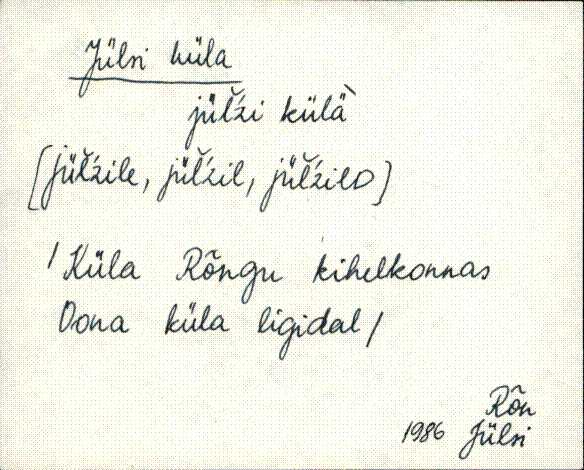 Jülsi küla
jüĺźi külä̀
[jüĺźile, jüĺźil, jüĺźilD]
/Küla Rõngu kihelkonnas
Oona küla ligidal/
Rõn
1986 Jülsi